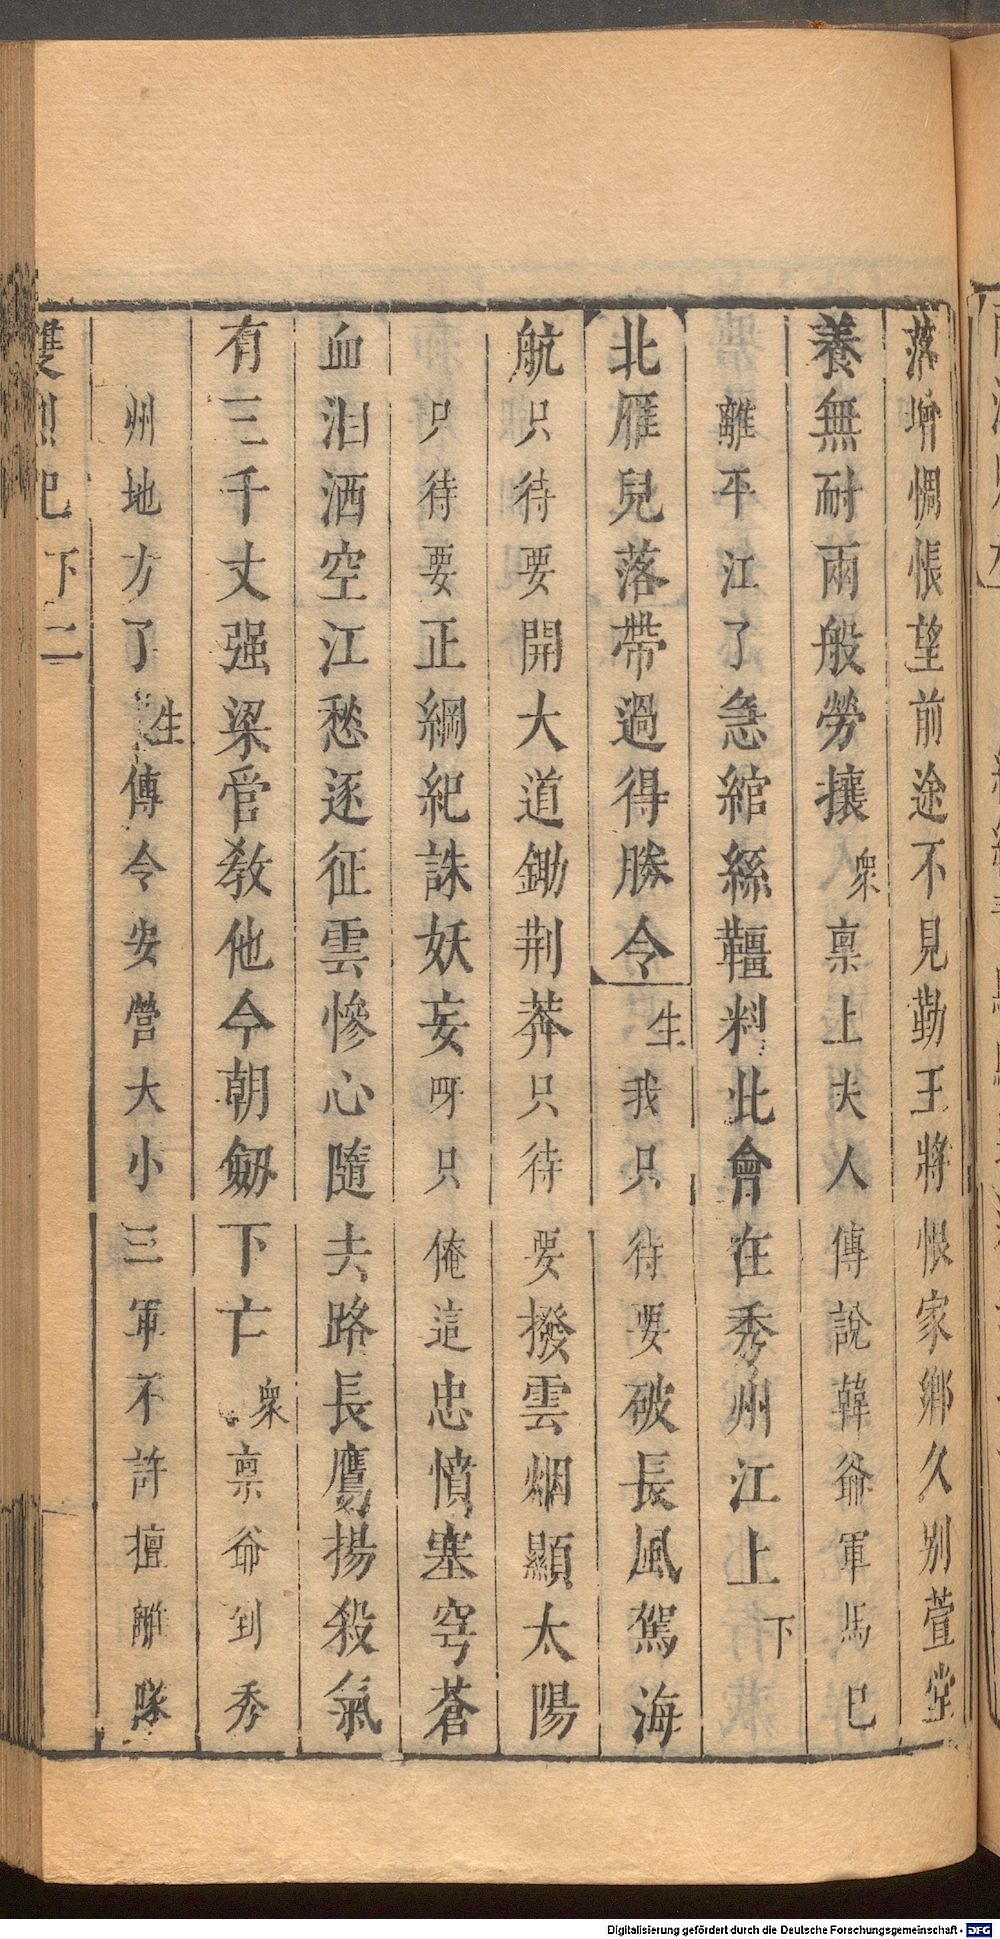 落增惆悵望前途不見勤王將恨家鄉久别萱堂
養無耐兩般勞攘衆稟上夫人傳說韓爺軍馬已
離平江了急綰絲韁料此會在秀州江上下
北雁兒落帶過得勝令生我只待要破長風駕海
航只待要開大道鋤荆莽只待要撥雲烟顯太陽
只待要正綱紀誅妖妄呀只俺這忠憤塞穹蒼
血泪洒空江愁逐征雲慘心隨去路長鷹揚殺氣
有三千丈强梁管教他今朝劒下亡衆稟爺到秀
州地方了生傳令安營大小三軍不許擅離隊
雙烈記 下 二
Digitalisierung gefördert durch die Deutsche Forschungsgemeinschaft - DFG